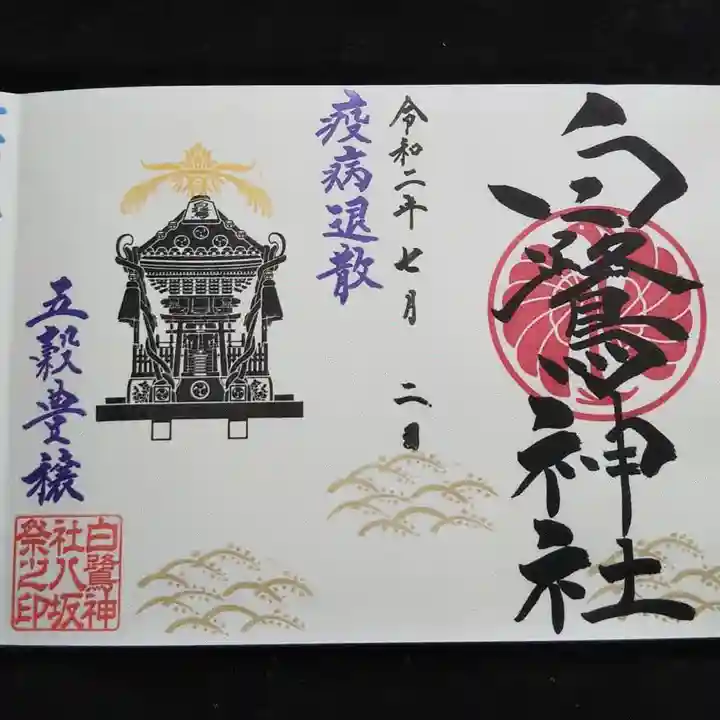 白鷺神社
令和二年七月 二日
疫病退散
五穀豊穣
白鷺神
社八坂
祭之印